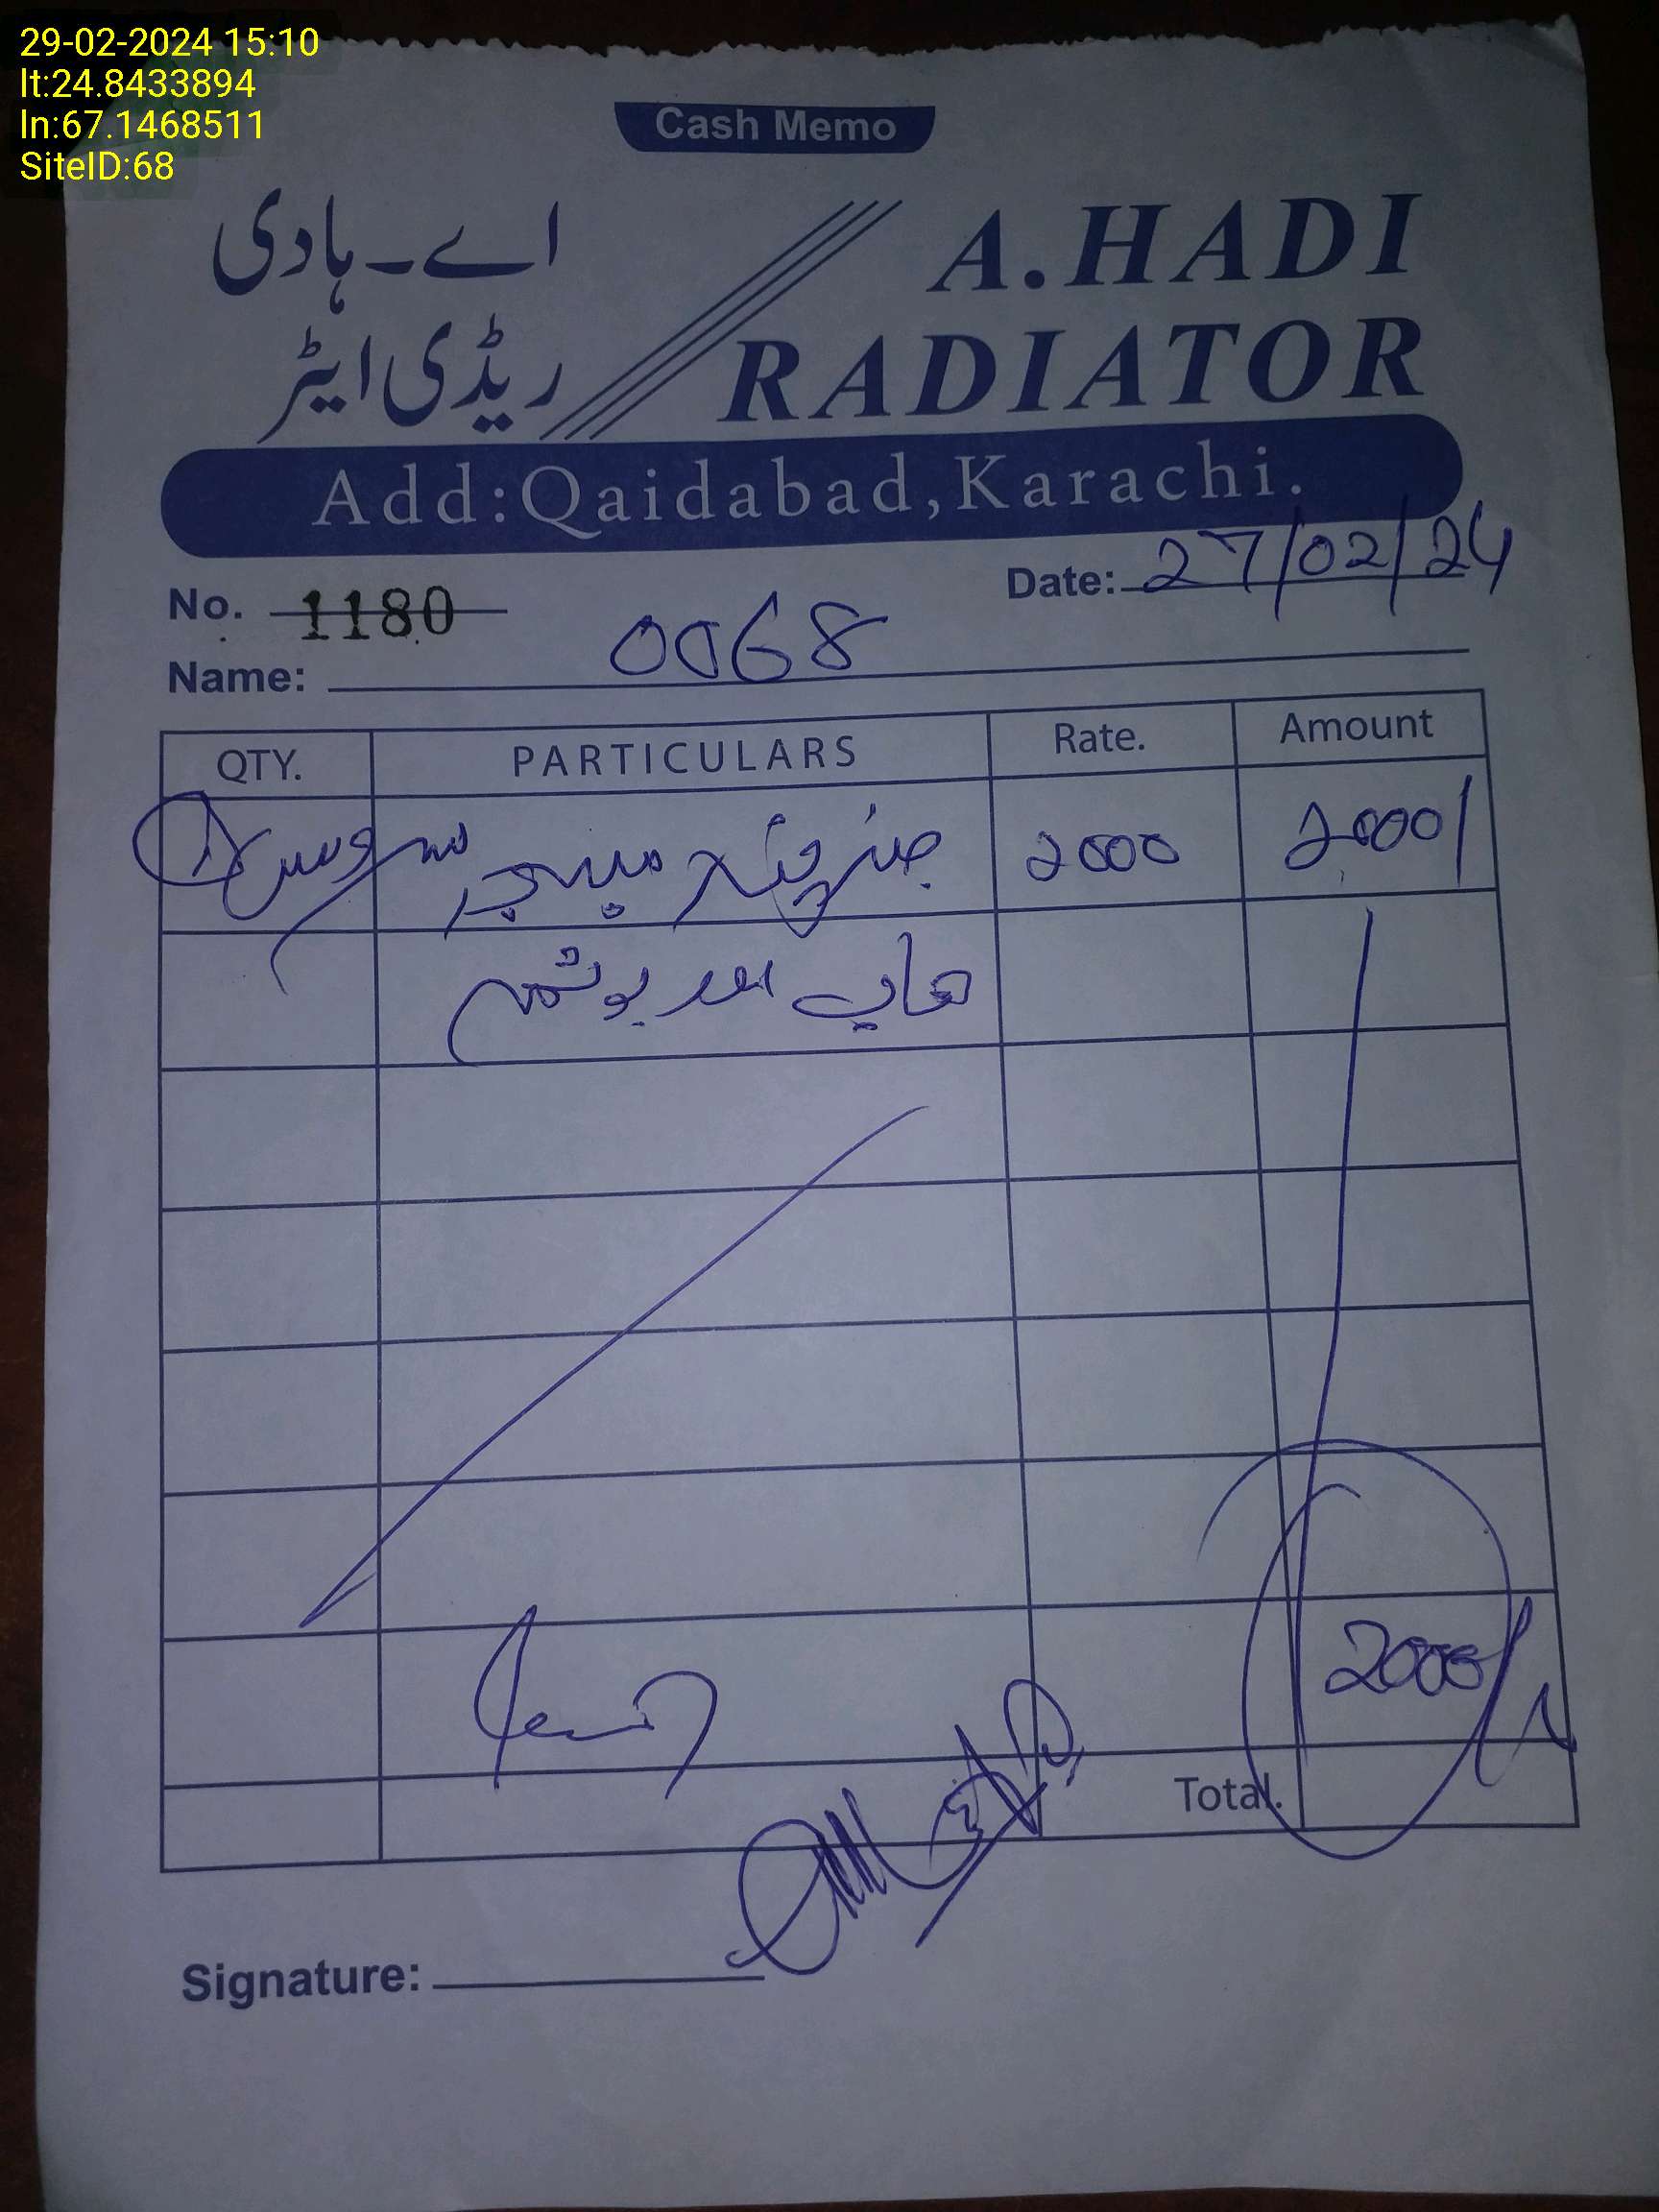 29-02-2024 15:10
lt:24.8433894
ln:67.1468511
SiteID:68
Cash Memo
اے-ہادی
ریڈی ایٹر
A.HADI
RADIATOR
Add:Qaidabad,Karachi.
No. 1180
Date: 27/02/24
Name: 0068
QTY. PARTICULARS Rate. Amount
1 سروس 2000 2000/
اور
2000/
Total.
Signature: